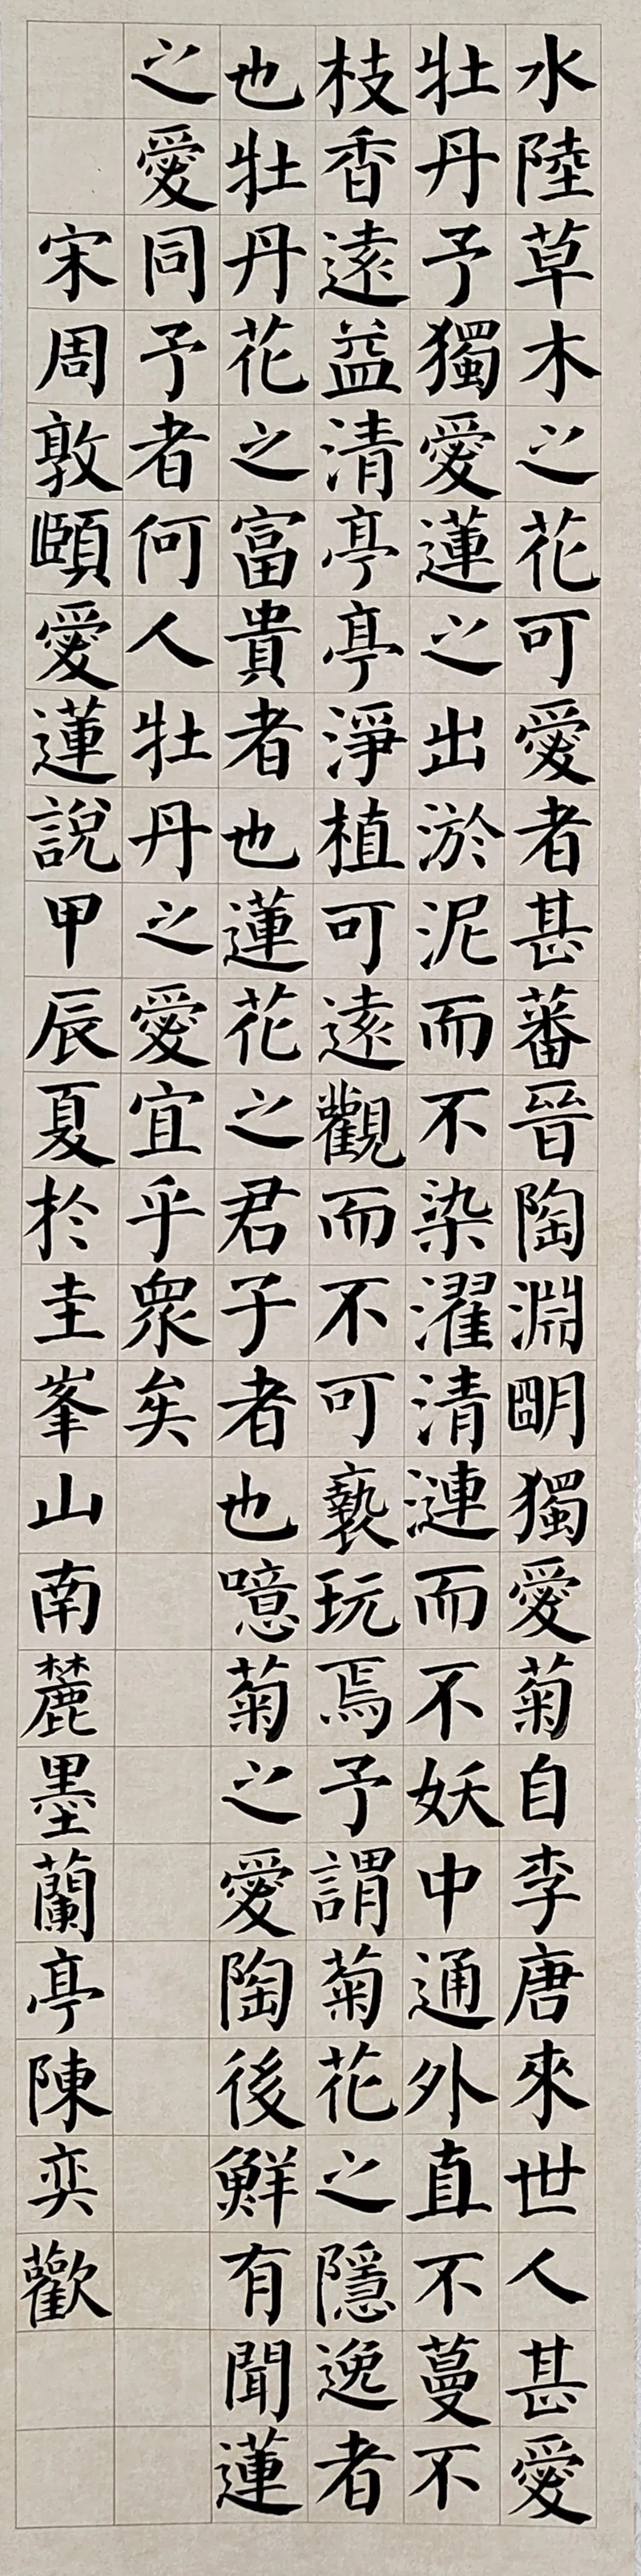 水陸草木之花可愛者甚蕃晉陶淵明獨愛菊自李唐來世人甚愛
牡丹予獨愛蓮之出淤泥而不染濯清漣而不妖中通外直不蔓不
枝香遠益清亭亭淨植可遠觀而不可褻玩焉予謂菊花之隱逸者
也牡丹花之富貴者也蓮花之君子者也噫菊之愛陶後鮮有聞蓮
之愛同予者何人牡丹之愛宜乎眾矣
宋周敦頤愛蓮說甲辰夏於圭峯山南麓墨蘭亭陳奕歡